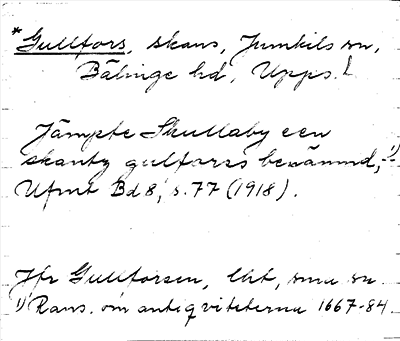 *Gullfors, skans, Jumkils sn,
Bälinge hd, Upps. l
Jämpte Skullaby een
skantz gulforss benämnd, 1)
Ufmt Bd 8, s. 77 (1918).
Jfr Gullforsen, lht, smu sn
1) Rans. om antiqviteterna 1667-84.